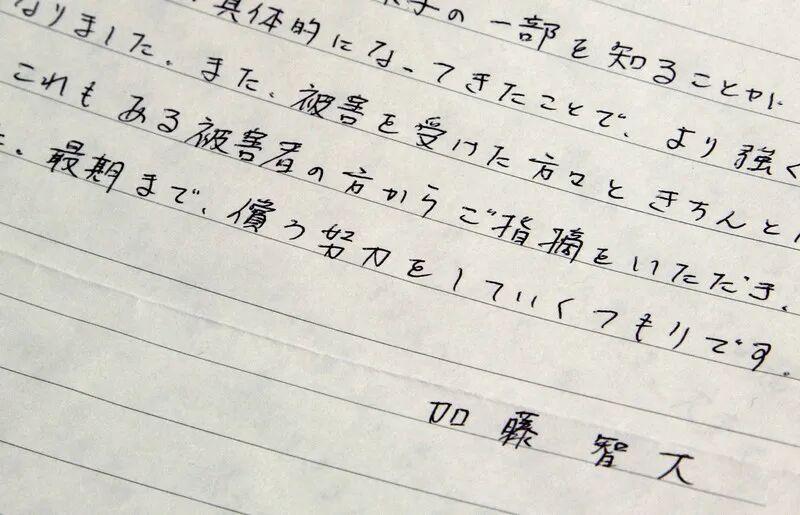 の一部を知ることが、
具体的になってきたことで、より強く
なりました。また、被害を受けた方々ときちんと
これもある被害者の方からご指摘をいただき、
最期まで、償う努力をしていくつもりです。
加藤智大